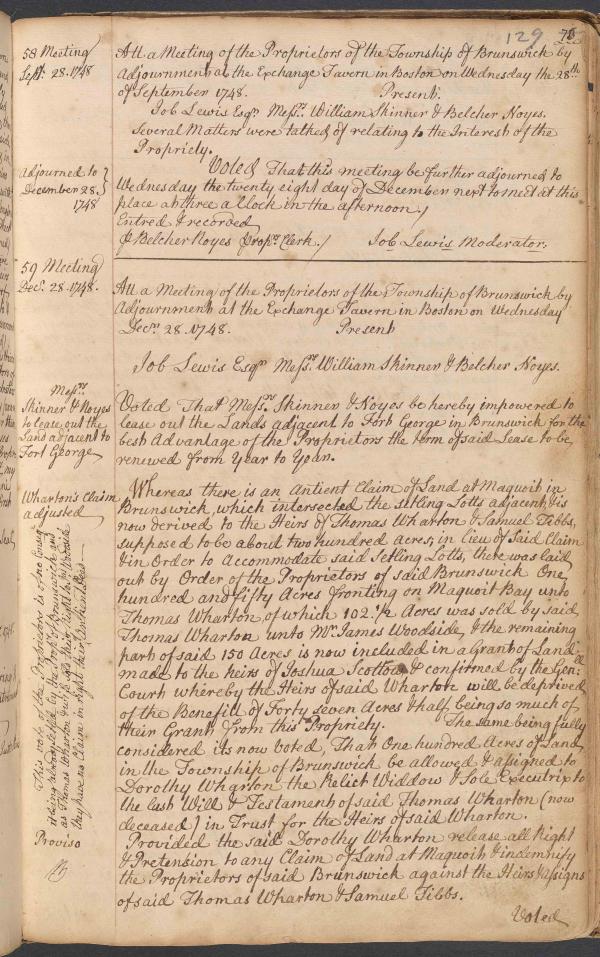 129 73
58 Meeting
Sept. 28. 1748
Att a Meeting of the Proprietors of the Township of Brunswick by
Adjournment at the Exchange Tavern in Boston on Wednesday the 28th
of September 1748. Present.
Job Lewis Esqr. Messrs. William Skinner & Belcher Noyes.
Several Matters were talked of relating to the Interest of the
Propriety.
Adjourned to
December 28.
1748
Voted That this meeting be further adjourned to
Wednesday the twenty eight day of December next to meet at this
place at three a Clock in the afternoon./
Entred & recorded
⅌ Belcher Noyes Proprs. Clerk./ Job Lewis Moderator.
59 Meeting
Decr. 28. 1748.
Att a Meeting of the Proprietors of the Township of Brunswick by
Adjournment at the Exchange Tavern in Boston on Wednesday
Decr. 28. 1748. Present
Job Lewis Esqr. Messrs. William Skinner & Belcher Noyes.
Messrs
Skinner & Noyes
to lease out the
Land adjacent to
Fort George
Voted That Messrs. Skinner & Noyes be hereby impowered to
lease out the Lands adjacent to Fort George in Brunswick for the
best Advantage of the Proprietors the term of said Lease to be
renewed from Year to Year.
Wharton's Claim
adjusted
Whereas there is an Antient Claim of Land at Maquoit in
Brunswick, which intersected the setling Lotts adjacent, & is
now derived to the Heirs of Thomas Wharton & Samuel Tibbs,
supposed to be about two hundred Acres, in lieu of said Claim
& in Order to accommodate said Setling Lotts, there was laid
out by Order of the Proprietors of said Brunswick One
hundred and fifty Acres fronting on Maquoit Bay unto
Thomas Wharton, of which 102 1/2 Acres was sold by said
Thomas Wharton unto Mr. James Woodside, & the remaining
part of said 150 Acres is now included in a Grant of Land
made to the heirs of Joshua Scottow & confirmed by the Genll:
Court whereby the Heirs of said Wharton will be deprived
of the Benefitt of Forty seven Acres & half, being so much of
their Grant from this Propriety. The same being fully
considered its now Voted, That One hundred Acres of Land
in the Township of Brunswick be allowed & assigned to
Dorothy Wharton the Relict Widdow & Sole Executrix to
the last Will & Testament of said Thomas Wharton (now
deceased) in Trust for the Heirs of said Wharton.
This vote of the Proprietors is
it being acknowledged by the Proprs of Brunswick and
as Thomas Wharton & wife
they have no Claim in right
Proviso
Provided the said Dorothy Wharton release all Right
& Pretension to any Claim of Land at Maquoit & indemnify
the Proprietors of said Brunswick against the Heirs & Assigns
of said Thomas Wharton & Samuel Tibbs.
Voted